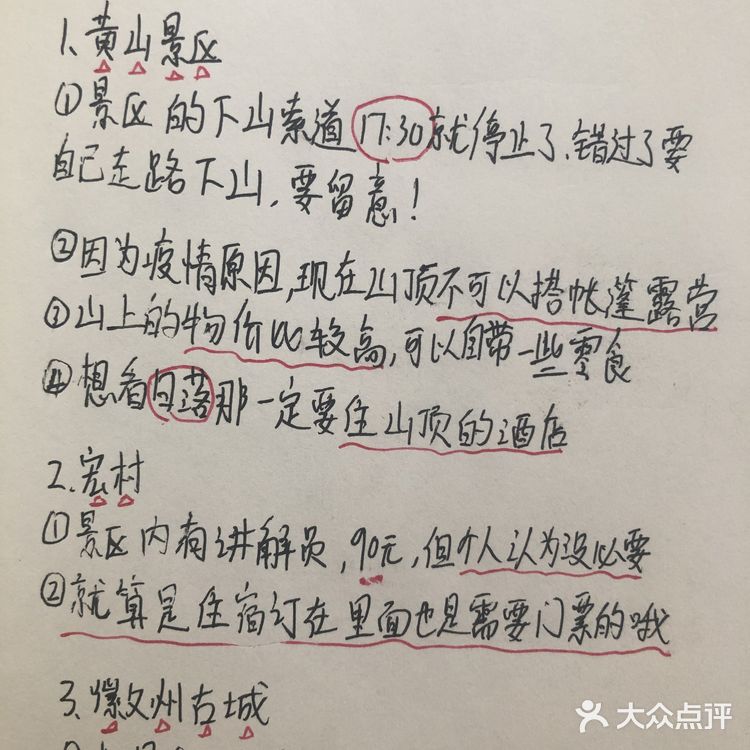 1、黄山景区
①景区的下山索道17:30就停止了、错过了要
自己走路下山,要留意!
②因为疫情原因,现在山顶不可以搭帐篷露营
③山上的物价比较高,可以自带一些零食
④想看日落那一定要住山顶的酒店
2.宏村
①景区内有讲解员,90元,但个人认为没必要
②就算是住宿订在里面也是需要门票的哦
3、徽州古城
大众点评